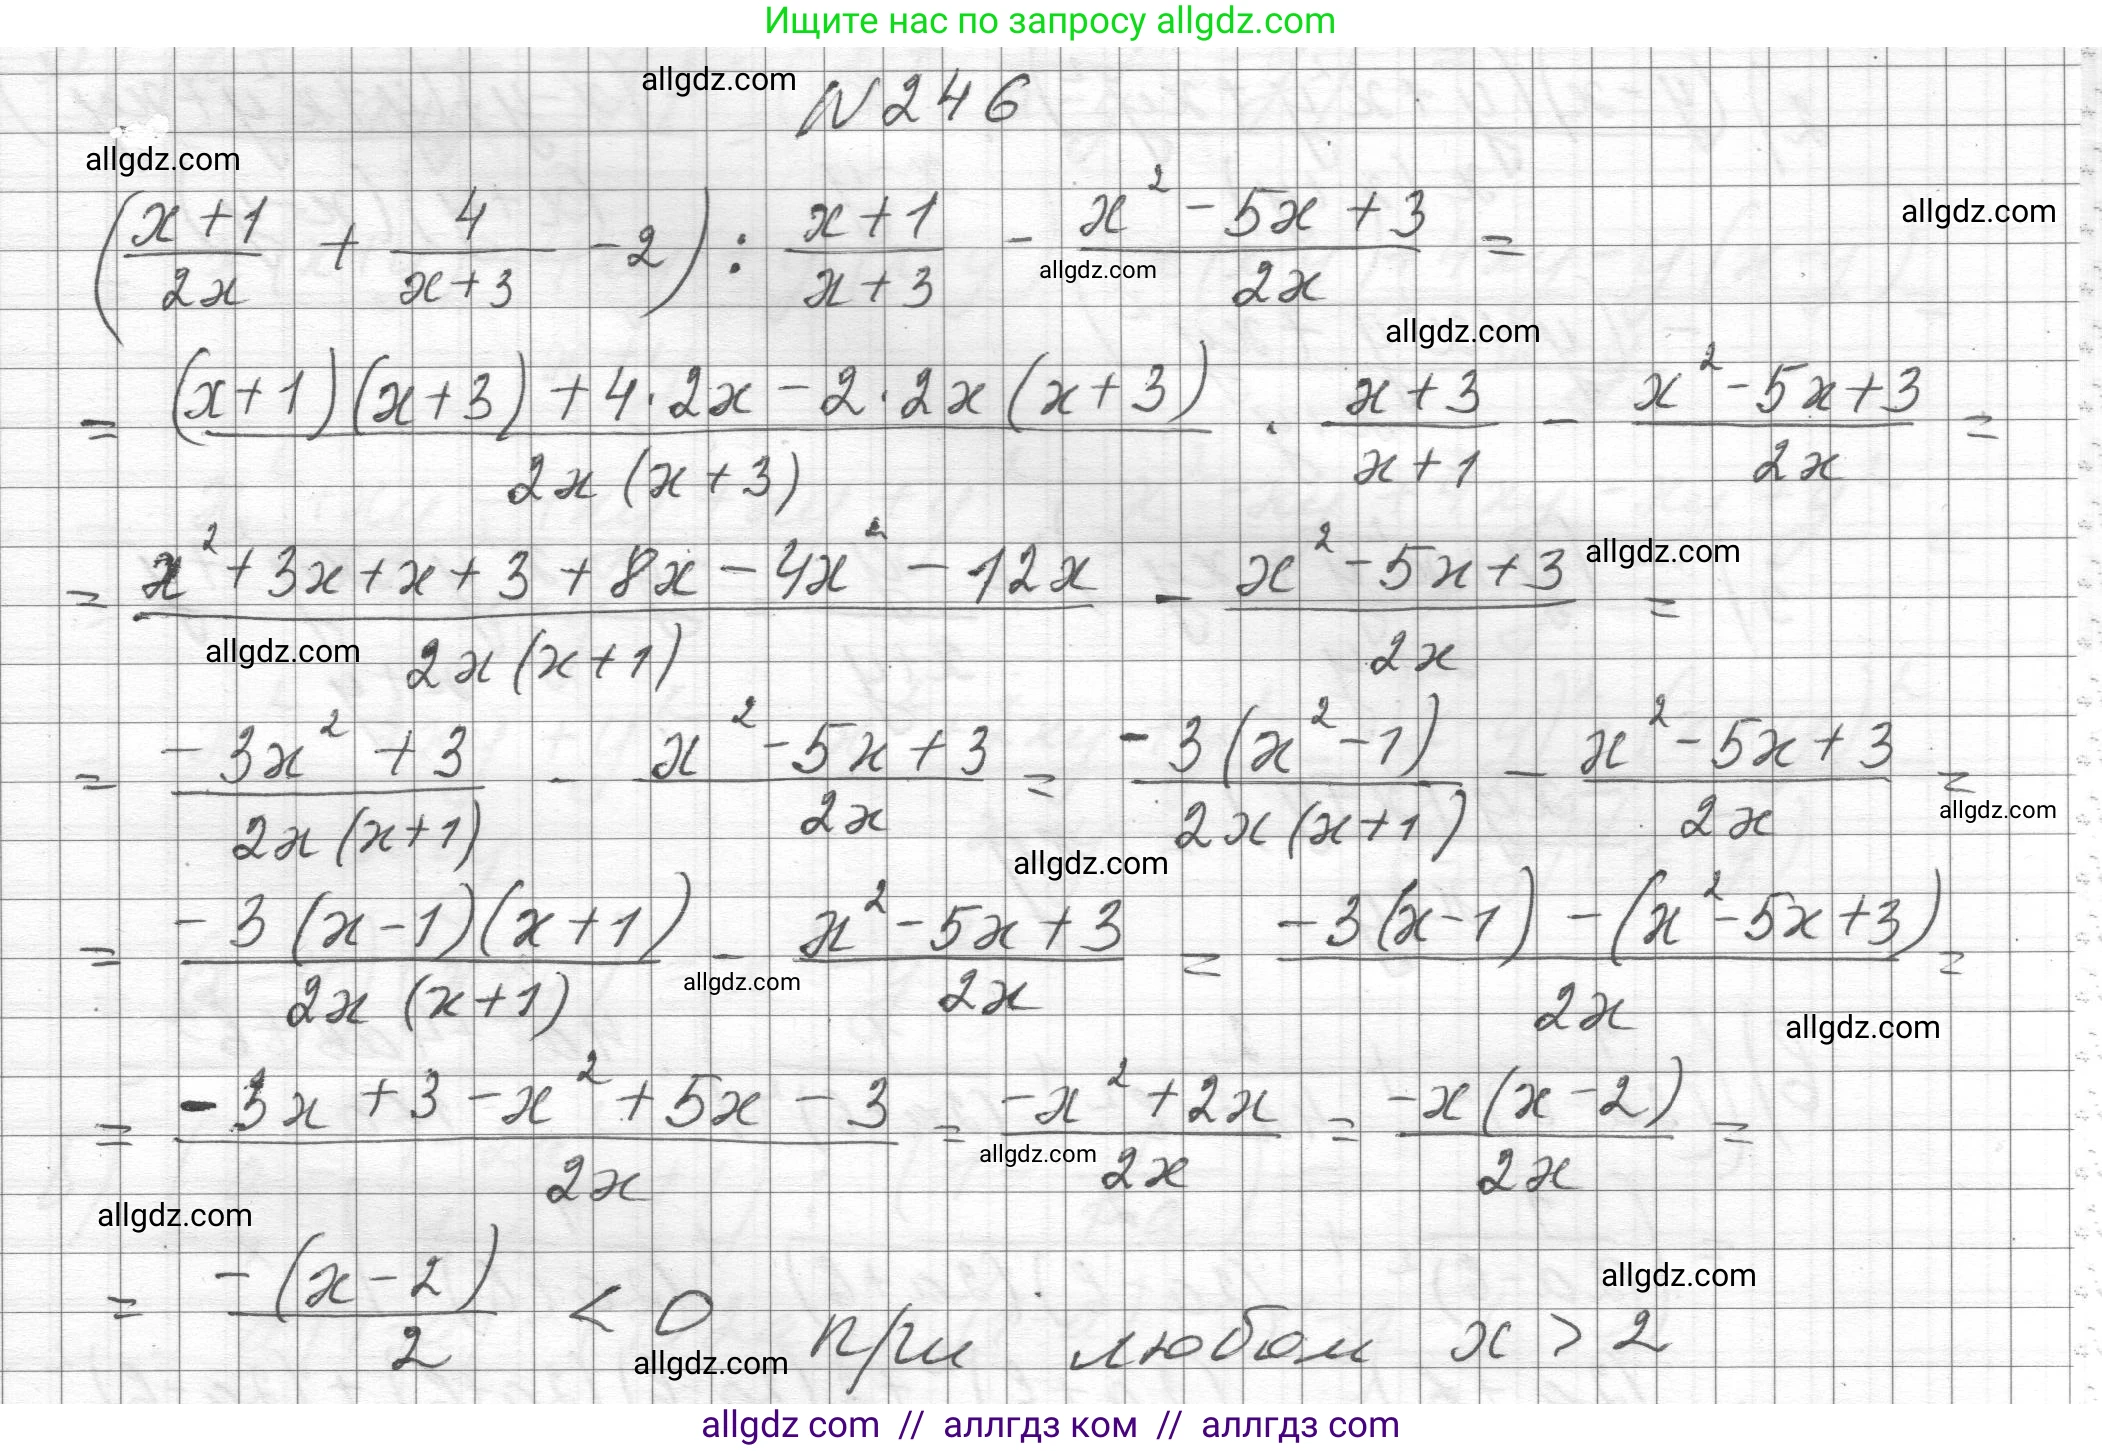 Ищите нас по запросу allgdz.com
allgdz.com
N 246
allgdz.com
allgdz.com
((x+1)/(2x) + 4/(x+3) - 2) : (x+1)/(x+3) - (x² - 5x + 3)/(2x) =
allgdz.com
allgdz.com
= ((x+1)(x+3) + 4·2x - 2·2x(x+3))/(2x(x+3)) · (x+3)/(x+1) - (x² - 5x + 3)/(2x) =
= (x² + 3x + x + 3 + 8x - 4x² - 12x)/(2x(x+1)) - (x² - 5x + 3)/(2x) =
allgdz.com
allgdz.com
= (-3x² + 3)/(2x(x+1)) - (x² - 5x + 3)/(2x) = (-3(x² - 1))/(2x(x+1)) - (x² - 5x + 3)/(2x) =
allgdz.com
allgdz.com
= (-3(x-1)(x+1))/(2x(x+1)) - (x² - 5x + 3)/(2x) = (-3(x-1) - (x² - 5x + 3))/(2x) =
allgdz.com
allgdz.com
= (-3x + 3 - x² + 5x - 3)/(2x) = (-x² + 2x)/(2x) = (-x(x-2))/(2x) =
allgdz.com
allgdz.com
= (-(x-2))/2 < 0 при любом x > 2
allgdz.com
allgdz.com
allgdz com // аллгдз ком // аллгдз com